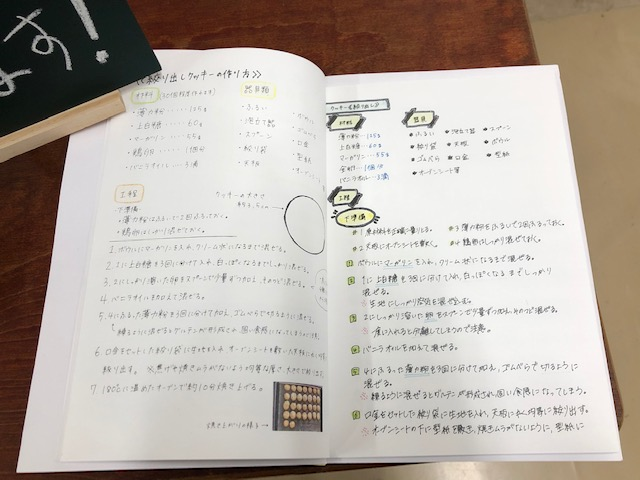 ます!
《絞り出しクッキーの作り方》
材料(30個程度作れます)
・薄力粉……125g
・上白糖……60g
・マーガリン……55g
・鶏卵……1個分
・バニラオイル…3滴
器具類
・ふるい
・泡立て器
・スプーン
・絞り袋
・天板
・めん
・ボウル
・ゴム
・口金
・型紙
・オーブンシート
工程
・下準備
・薄力粉はふるいで2回ふるっておく。
・鶏卵はしっかり混ぜておく。
クッキーの大きさ
約3.5cm
1.ボウルにマーガリンを入れ、クリーム状になるまで混ぜる。
2.1に上白糖を3回に分けて入れ、白っぽくなるまでしっかり混ぜる。
3.2にしっかり溶いた卵をスプーンで少量ずつ加え、そのつど混ぜる。
4.バニラオイルを加えて混ぜる。
5.4にふるった薄力粉を3回に分けて加え、ゴムべらで切るように混ぜる。
練るように混ぜるとグルテンが形成され、固い食感になってしまう
6.口金をセットした絞り袋に生地を入れ、オーブンシートを敷いた天板に
絞り出す。
7.180℃に温めたオーブンで約10分焼き上げる。
焼き上がりの様子→
クッキー《絞り出し》
材料
薄力粉…125g
上白糖…60g
マーガリン…55g
全卵…1個分
バニラオイル…3滴
器具
ふるい
泡立て器
スプーン
絞り袋
天板
ボウル
ゴムべら
口金
型紙
オーブンシート
工程
下準備
1 原材料を正確に量りとる。
3 薄力粉をふるいで2回ふるっておく。
2 天板にオーブンシートを敷く。
4 鶏卵はしっかり混ぜておく。
1 ボウルにマーガリンを入れ、クリーム状になるまで混ぜる。
2 1に上白糖を3回に分けて入れ、白っぽくなるまでしっかり
混ぜる。
生地にしっかり空気を混ぜ込む。
3 2にしっかり溶いた卵をスプーンで少量ずつ加え、そのつど混ぜる。
一度に入れると分離してしまうので注意。
4 バニラオイルを加えて混ぜる。
5 4にふるった薄力粉を3回に分けて加え、ゴムべらで切るように
混ぜる。
練るように混ぜるとグルテンが形成され、固い食感になってしまう。
6 口金をセットした絞り袋に生地を入れ、天板に均等に絞り出す。
オーブンシートの下に型紙を敷き、焼きムラがないように、型紙に